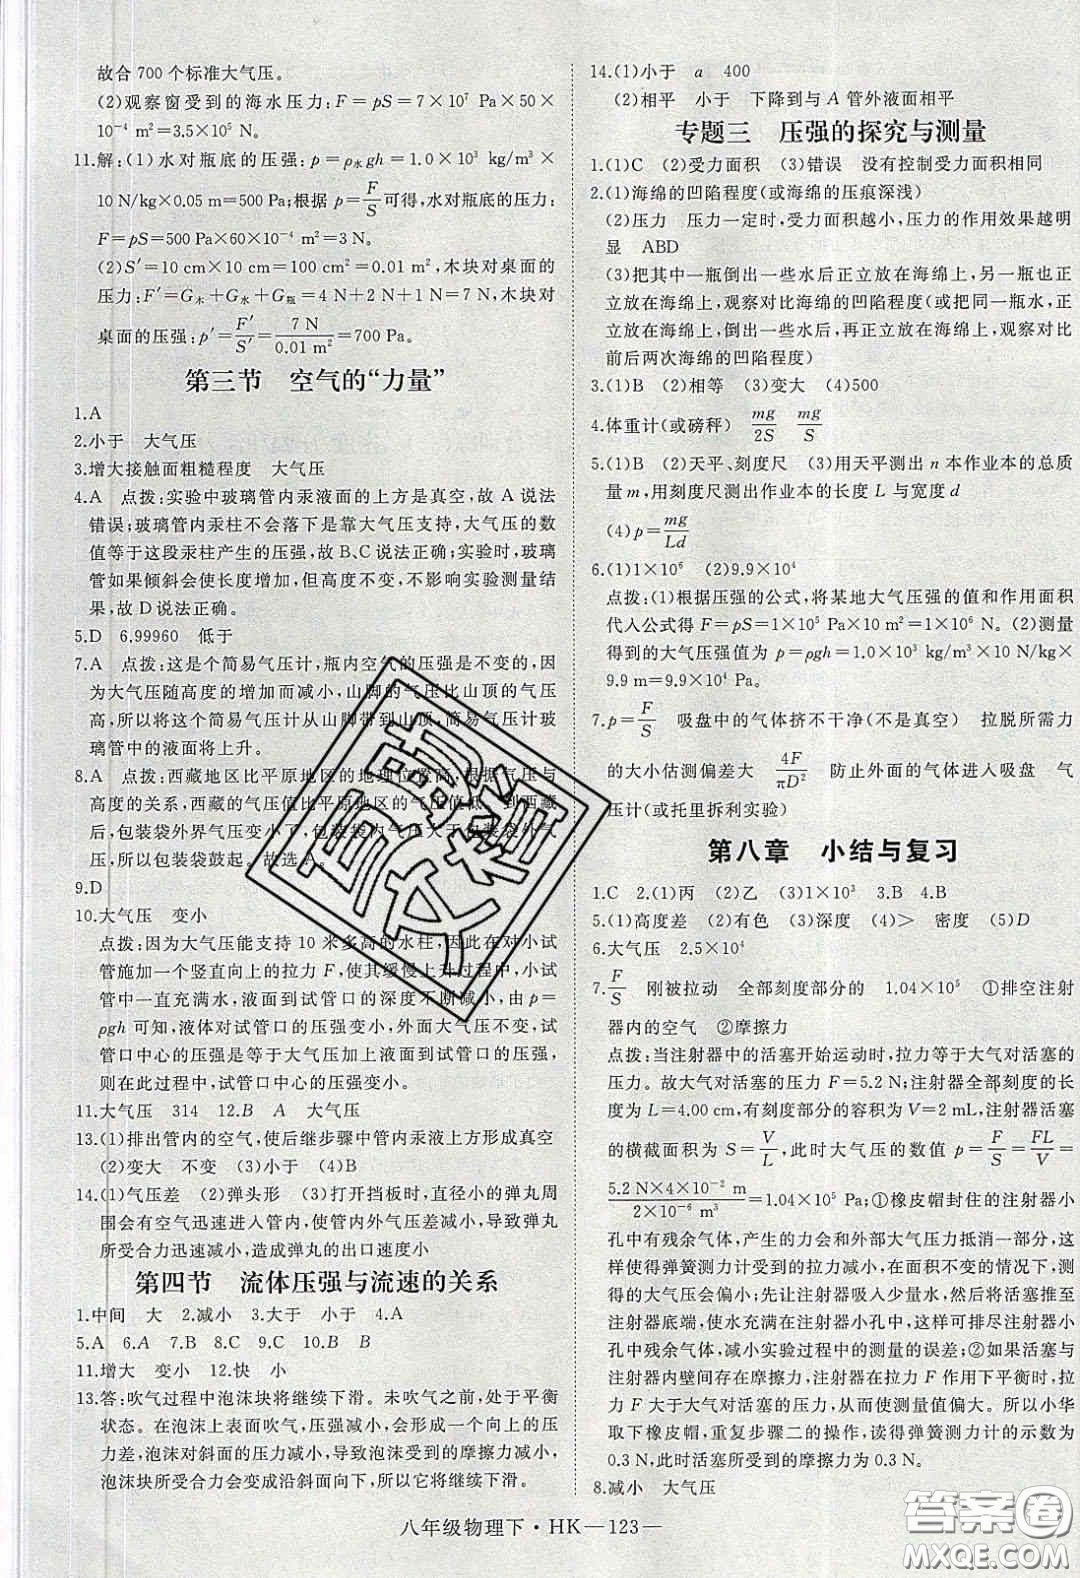 故合 700 个标准大气压。
(2)观察窗受到的海水压力:F=pS=7×10⁷ Pa×50×
10⁻⁴ m²=3.5×10⁵ N。
11.解:(1)水对瓶底的压强:p=ρ水gh=1.0×10³ kg/m³×
10 N/kg×0.05 m=500 Pa;根据 p=F/S可得,水对瓶底的压力:
F=pS=500 Pa×60×10⁻⁴ m²=3 N。
(2)S′=10 cm×10 cm=100 cm²=0.01 m²,木块对桌面的
压力:F′=G木+G水+G瓶=4 N+2 N+1 N=7 N,木块对
桌面的压强:p′=F′/S′=7 N/0.01 m²=700 Pa。
第三节 空气的“力量”
1.A
2.小于 大气压
3.增大接触面粗糙程度 大气压
4.A 点拨:实验中玻璃管内汞液面的上方是真空,故 A 说法
错误;玻璃管内汞柱不会落下是靠大气压支持,大气压的数
值等于这段汞柱产生的压强,故 B、C 说法正确;实验时,玻璃
管如果倾斜会使长度增加,但高度不变,不影响实验测量结
果,故 D 说法正确。
5.D 6.99960 低于
7.A 点拨:这是个简易气压计,瓶内空气的压强是不变的,因
为大气压随高度的增加而减小,山脚的气压比山顶的气压
高,所以将这个简易气压计从山脚带到山顶,简易气压计玻
璃管中的液面将上升。
8.A 点拨:西藏地区比平原地区的地理位置高,根据气压与
高度的关系,西藏的气压值比平原地区的气压值低。到西藏
后,包装袋外界气压变小了,包装袋内气压大于包装袋外气
压,所以包装袋鼓起。故选 A。
9.D
10.大气压 变小
点拨:因为大气压能支持 10 米多高的水柱,因此在对小试
管施加一个竖直向上的拉力 F,使其缓慢上升过程中,小试
管中一直充满水,液面到试管口的深度不断减小,由 p=
ρgh 可知,液体对试管口的压强变小;大气压不变,试
管口中心的压强是等于大气压加上液面到试管口的压强,
则在此过程中,试管口中心的压强变小。
11.大气压 314 12.B A 大气压
13.(1)排出管内的空气,使后继步骤中管内汞液上方形成真空
(2)变大 不变 (3)小于 (4)B
14.(1)气压差 (2)弹头形 (3)打开挡板时,直径小的弹丸周
围会有空气迅速进入管内,使管内外气压差减小,导致弹丸
所受合力迅速减小,造成弹丸的出口速度小
第四节 流体压强与流速的关系
1.中间 大 2.减小 3.大于 小于 4.A
5.A 6.A 7.B 8.C 9.C 10.B B
11.增大 变小 12.快 小
13.答:吹气过程中泡沫块将继续下滑。未吹气之前,处于平衡
状态。在泡沫上表面吹气,压强减小,会形成一个向上的压
力差,泡沫对斜面的压力减小,导致泡沫受到的摩擦力减小,
泡沫块所受合力会变成沿斜面向下,所以它将继续下滑。
14.(1)小于 a 400
(2)相平 小于 下降到与 A 管外液面相平
专题三 压强的探究与测量
1.(1)C (2)受力面积 (3)错误 没有控制受力面积相同
2.(1)海绵的凹陷程度(或海绵的压痕深浅)
(2)压力 压力一定时,受力面积越小,压力的作用效果越明
显 ABD
(3)把其中一瓶倒出一些水后正立放在海绵上,另一瓶也正
立放在海绵上,观察对比海绵的凹陷程度(或把同一瓶水,正
立放在海绵上,倒出一些水后,再正立放在海绵上,观察对比
前后两次海绵的凹陷程度)
3.(1)B (2)相等 (3)变大 (4)500
4.体重计(或磅秤) mg/2S mg/S
5.(1)B (2)天平、刻度尺 (3)用天平测出 n 本作业本的总质
量 m,用刻度尺测出作业本的长度 L 与宽度 d
(4)p=mg/Ld
6.(1)1×10⁶ (2)9.9×10⁴
点拨:(1)根据压强的公式,将某地大气压强的值和作用面积
代入公式得 F=pS=1×10⁵ Pa×10 m²=1×10⁶ N。(2)测量
得到的大气压强值为 p=ρgh=1.0×10³ kg/m³×10 N/kg×
9.9 m=9.9×10⁴ Pa。
7.p=F/S 吸盘中的气体挤不干净(不是真空) 拉脱所需力
的大小估测偏差大 4F/πD² 防止外面的气体进入吸盘 气
压计(或托里拆利实验)
第八章 小结与复习
1.C 2.(1)丙 (2)乙 (3)1×10³ 3.B 4.B
5.(1)高度差 (2)有色 (3)深度 (4)> 密度 (5)D
6.大气压 2.5×10⁴
7.F/S 刚被拉动 全部刻度部分的 1.04×10⁵ ①排空注射
器内的空气 ②摩擦力
点拨:当注射器中的活塞开始运动时,拉力等于大气对活塞的
压力。故大气对活塞的压力 F=5.2 N;注射器全部刻度的长
度为 L=4.00 cm,有刻度部分的容积为 V=2 mL,注射器活塞
的横截面积为 S=V/L,此时大气压的数值 p=F/S=FL/V=
5.2 N×4×10⁻² m/2×10⁻⁶ m³=1.04×10⁵ Pa;①橡皮帽封住的注射器小
孔中有残余气体,产生的力会和外部大气压力抵消一部分,
导致弹簧测力计受到的拉力减小,在面积不变的情况下,测
得的大气压会偏小;先让注射器吸入少量水,会使活塞推至
注射器底端,使水充满注射器小孔中,这样便可以排出小孔
中残余气体,减小实验过程中的测量的误差;②如果活塞与
注射器内壁间存在摩擦力,在拉力 F 作用下平衡时,拉力 F
大于大气对活塞的压力,使得测量值偏大。所以小华取下
橡皮帽,重复步骤二的操作,读得弹簧测力计的示数为
0.3 N,此时摩擦力与弹簧测力计的拉力平衡,也为 0.3 N。
8.减小 大气压
八年级物理下·HK—123—
答案圈
MXQE.COM